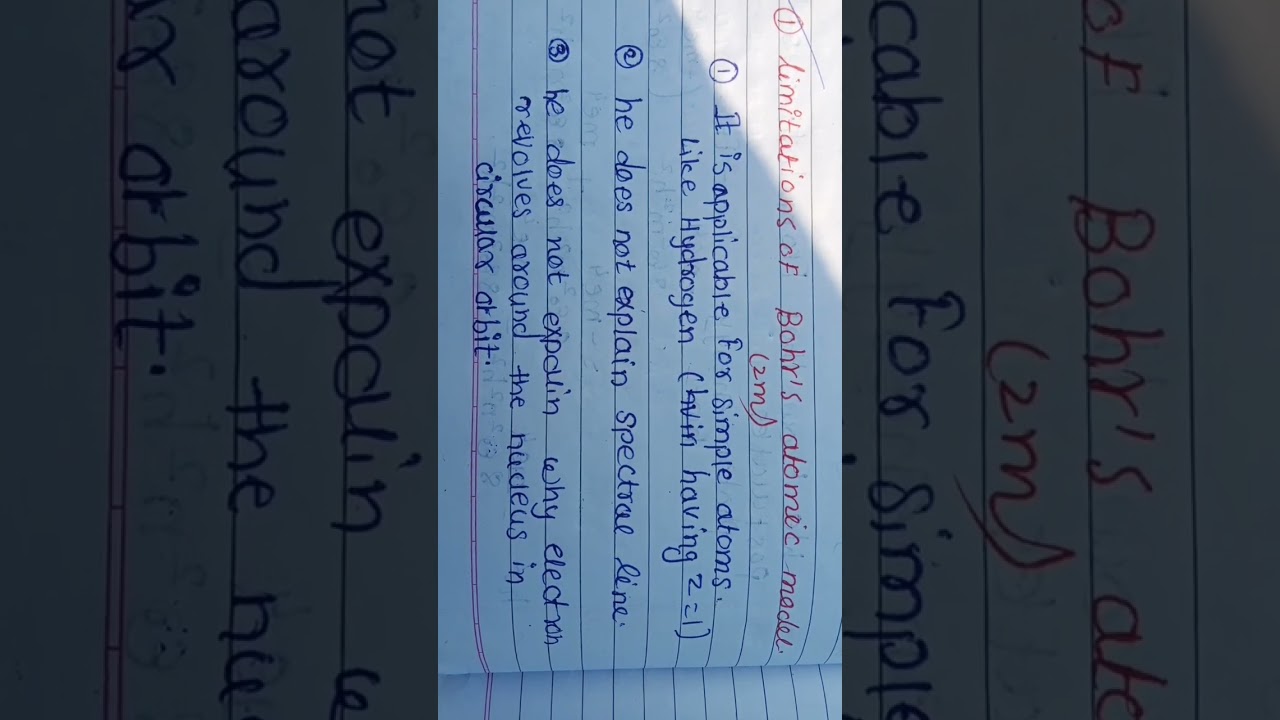 ① limitations of Bohr's atomic model.
(2m)
① It is applicable for simple atoms.
like Hydrogen (having z=1)
② he does not explain spectral line.
③ he does not expalin why electron
revolves around the nucleus in
circular orbit.